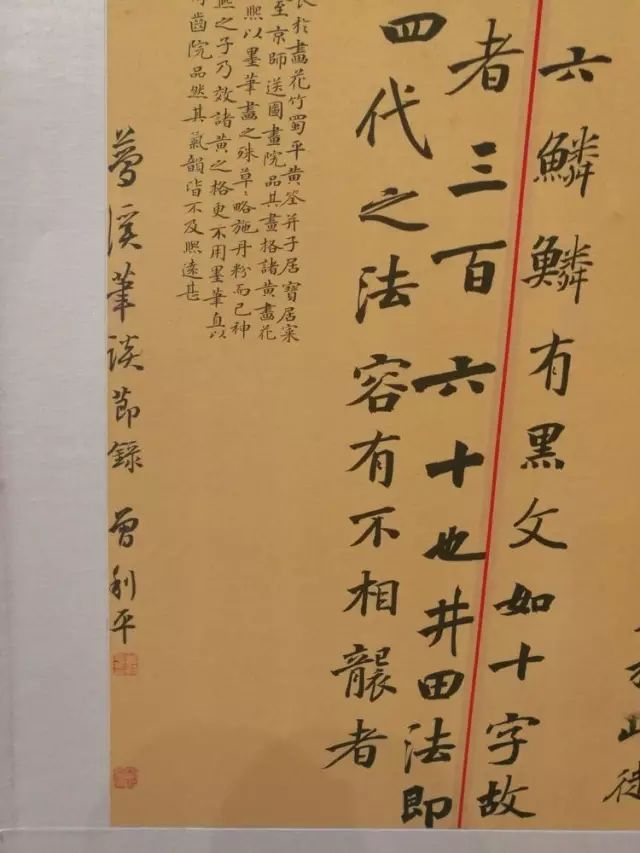 六鱗鱗有黑文如十字故
者三百六十也井田法即
四代之法容有不相襲者
於畫花竹蜀平黄筌并子居寶居寀
至京師送圖畫院品其畫格諸黄畫花
熙以墨筆畫之殊草〻略施丹粉而已神
熙之子乃效諸黄之格更不用墨筆直以
齒院品然其氣韻皆不及熙遠甚
夢溪筆談節錄 曾利平